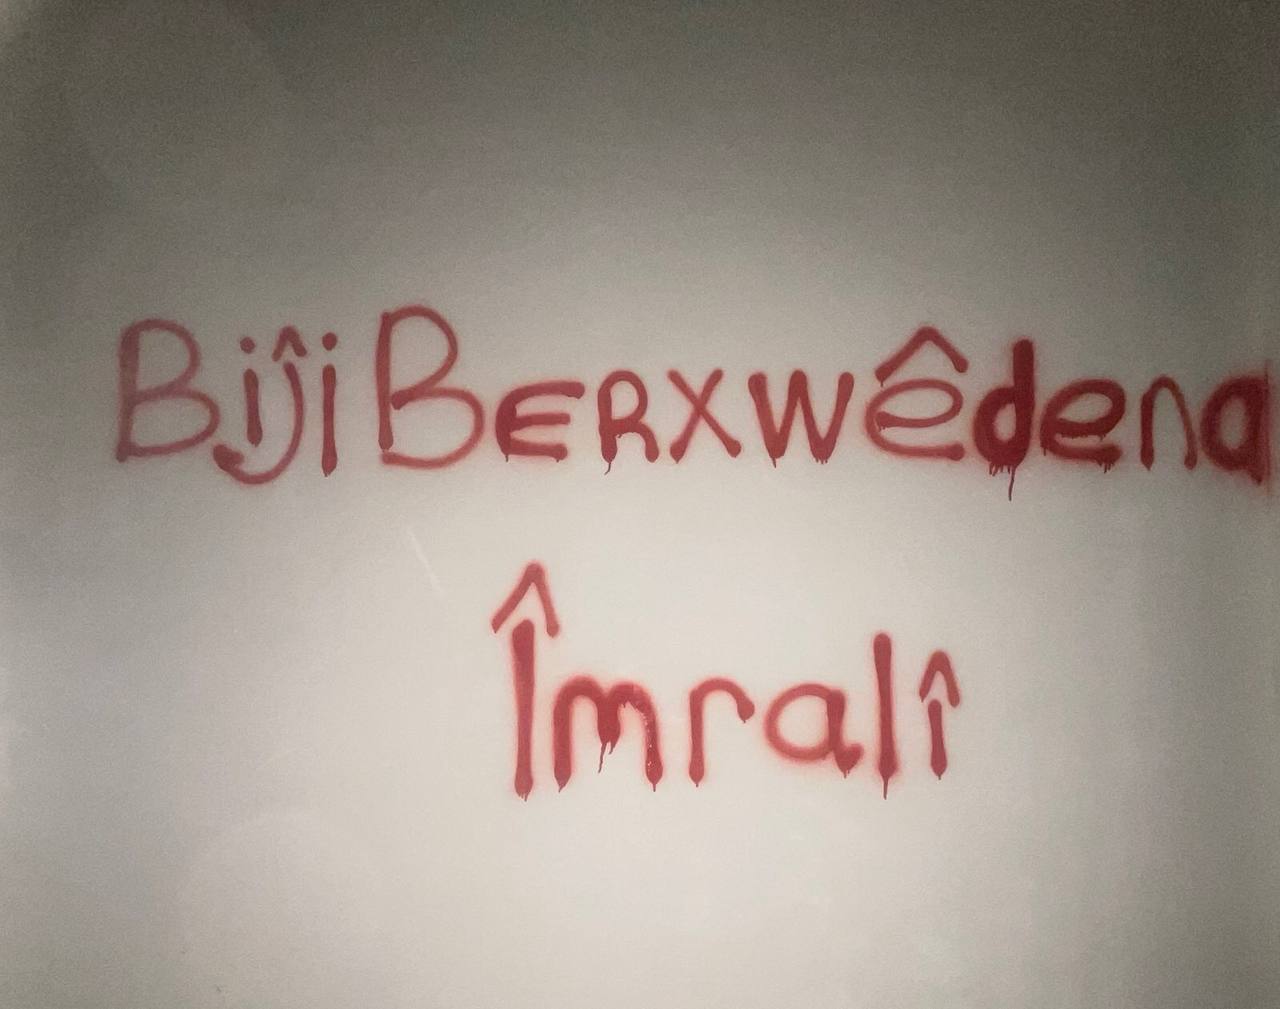 Biĵi BERXWêdena
Îmralî